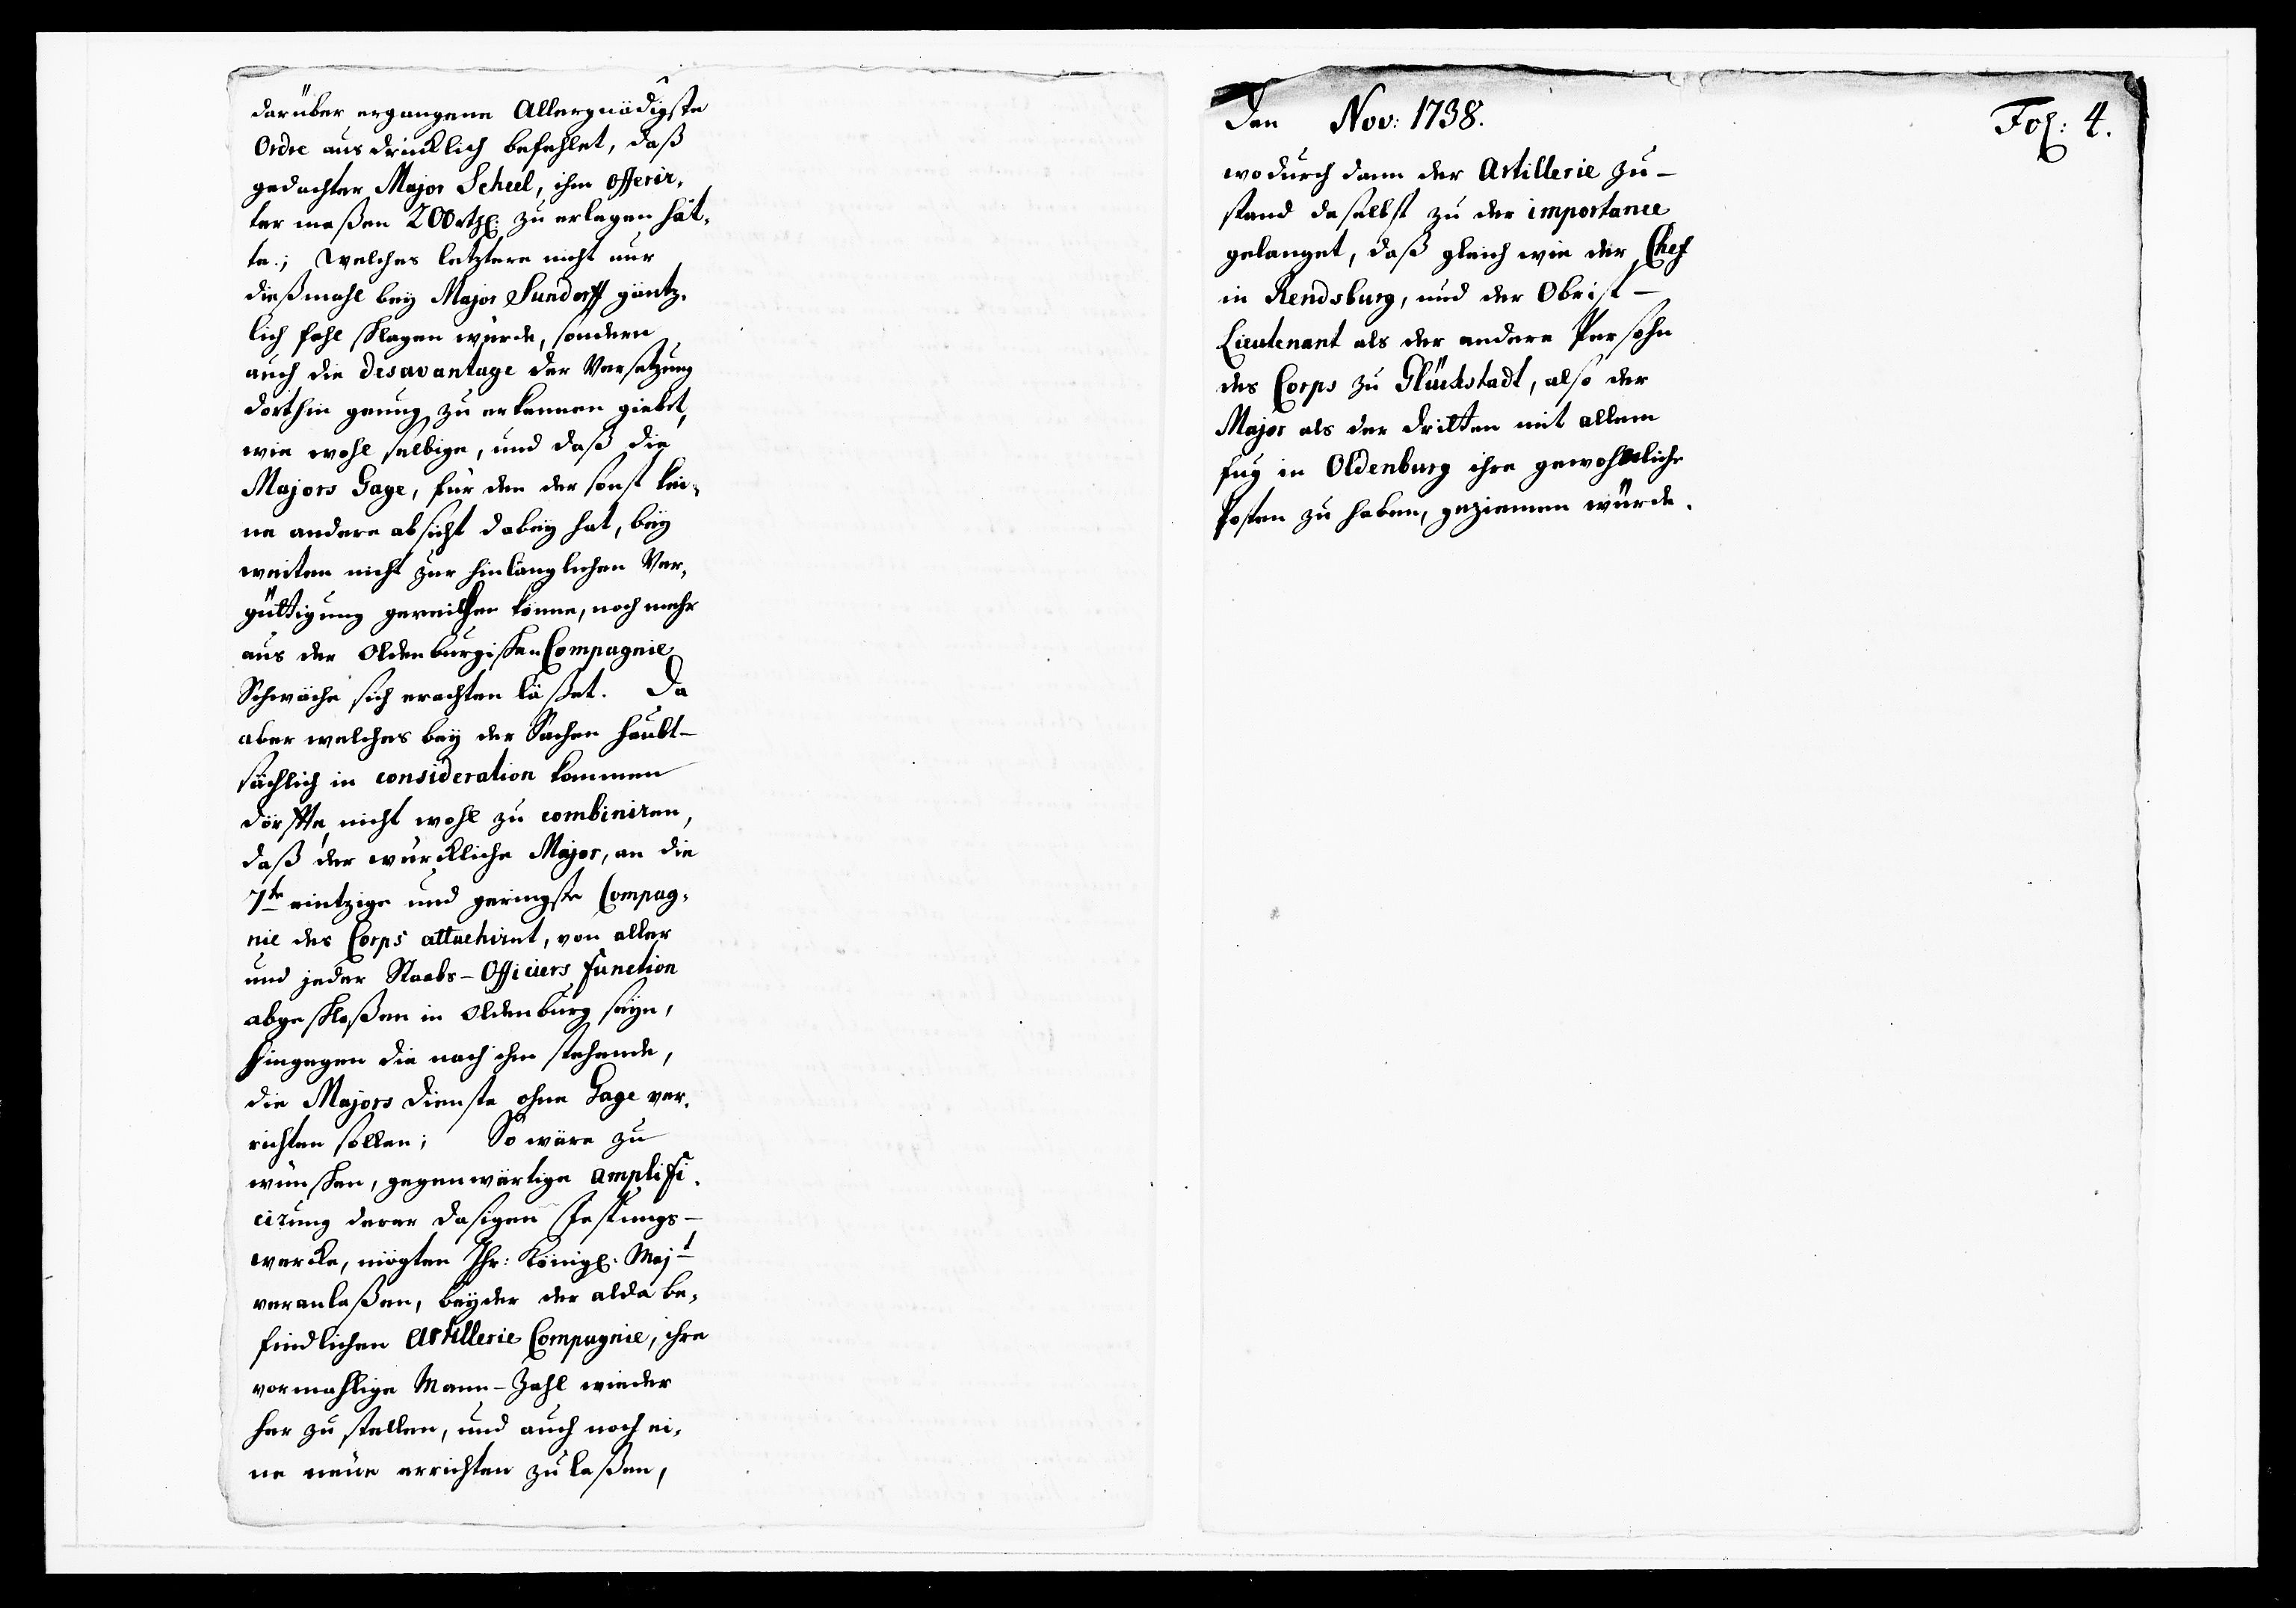 darüber ergangene Allergnädigste
Ordre ausdrücklich befehlet, daß
gedachter Major Scheel, ihm offerir,
ter maßen 200 rthl: zu erlegen hät,
te; Welches letztere nicht nur
dießmahl bey Major Sundorff gäntz,
lich fehl schlagen würde, sondern
auch die desavantage der Versetzung
dorthin genug zu erkennen giebet,
wie wohl selbige, und daß die
Majors Gage, für den der sonst kei,
ne andere absicht dabey hat, bey
weiten nicht zur hinlänglichen Ver,
gültigung gereichen könne, noch mehr
aus der Oldenburgischen Compagnie
Schwäche sich erachten läßet. Da
aber welches bey der Sachen haubt-
sächlich in consideration kommen
dörffte nicht wohl zu combiniren,
daß der würckliche Major, an die
7te eintzige und geringste Compag,
nie des Corps attachiret, von aller
und jeder Staabs-Officiers function
abgeschloßen in Oldenburg seyn,
hingegen die nach ihm stehende,
die Majors dienste ohne Gage ver,
richten sollen; So wäre zu
wünschen, gegenwärtige amplifi,
cirung derer dasigen Festungs-
wercke, mögten Ihr: Königl: Majt
veranlaßen, bey der der alda be,
findlichen Artillerie Compagnie, ihre
vormahlige Mann-Zahl wieder
her zu stellen, und auch noch ei,
ne neue errichten zu laßen,
Den Nov: 1738.
Fol: 4.
wodurch dann der Artillerie zu-
stand daselbst zu der importance
gelanget, daß gleich wie der Chef
in Rendsburg, und der Obrist-
Lieutenant als der andere Persohn
des Corps zu Glückstadt, also der
Major als der dritten mit allem
fug in Oldenburg ihre gewohnliche
Posten zu haben, geziemen würde.